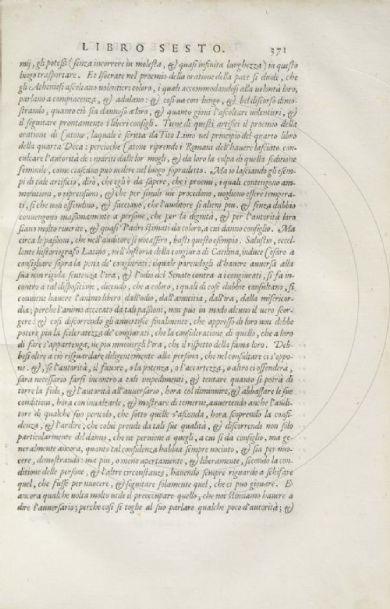 LIBRO SESTO. 371
mij, gli potessi (senza incorrere in molesta, & quasi infinita lunghezza) in questo
luogo trasportare. Et Isocrate nel proemio della oratione della pace si duole, che
gli Atheniesi ascoltano volentieri coloro, i quali accommodandosi alla volontà loro,
parlano a compiacenza, & adulano: & così va con lungo, & bel discorso dimo-
strando, quanto ciò sia dannoso a loro, & quanto giovi l'ascoltare volentieri, &
il seguitare prontamente i liberi consigli. Tiene di questi artifici il proemio della
oratione di Catone, laquale è scritta da Tito Livio nel principio del quarto libro
della quarta Deca: percioche Catone riprende i Romani dell'havere lasciato con-
culcare l'autorità de i mariti dalle lor mogli, & da loro la colpa di quella seditione
feminile, come ciascuno può vedere nel luogo sopradetto. Ma io lasciando gli esem-
pi di tali artifici, dirò, che egli è da sapere, che i proemi, i quali contengono am-
monitioni, o riprensioni, & che per simile via procedono, vogliono essere tempera-
ti, sì che non offendino, & facciano, che l'auditore si alieni più. & senza dubbio
convengono massimamente a persone, che per la dignità, & per l'autorità loro
siano molto riverite, & quasi Padri stimati da coloro, a cui danno consiglio. Ma
circa le passioni, che nell'auditore si trovassero, basti questo esempio. Salustio, eccel-
lente historiografo Latino, nell'historia della congiura di Catilina, induce Cesare a
consigliare sopra la pena de' congiurati: ilquale parendogli d'havere aversa alla
sua non rigida sentenza l'ira, & l'odio del Senato contra a i congiurati, si fa in-
contro a tal dispositione, dicendo, che a coloro, i quali di cose dubbie consultano, si
conviene havere l'animo libero dall'odio, dall'amicitia, dall'ira, dalla misericor-
dia; perche l'animo accecato da tali passioni, non può in modo alcuno il vero scor-
gere: & così discorrendo gli ammonisce finalmente, che appresso di loro non debbe
potere più la sceleratezza de' congiurati, che la consideratione di quello, che a loro
di fare s'appartenga, ne più muovergli l'ira, che il rispetto della fama loro. Deb-
besi oltre a ciò risguardare diligentemente alle persone, che nel consultare ci s'oppo-
ne. & se l'autorità, il favore, o la potenza, o l'accortezza, o altro ci offendera,
sarà necessario farsi incontro a tali impedimenti, & tentare quando si potrà di
torre la fede, & l'autorità all'aversario, hora col diminuire, & abbassare le sue
conditioni, hora con inalzarle, & mostrare di temerne, avvertendo anche l'audi-
tore di qualche suo pericolo, che sotto quelle s'asconda, hora scoprendo la confi-
denza, & l'ardire, che colui prende da tali sue qualità, & discorrendo non solo
particolarmente del danno, che ne perviene a quegli, a cui si da consiglio, ma ge-
neralmente ancora, quanto tal confidenza habbia sempre nociuto, & sia per nuo-
cere, dimostrando: ma più, o meno apertamente, & liberamente, secondo la con-
ditione delle persone, & l'altre circonstanze, havendo sempre riguardo a schifare
quel, che fusse per nuocere, & seguitare solamente quel, che ci può giovare. E
ancora qualche volta molto utile il preoccupare quello, che noi stimiamo havere a
dire l'aversario; perche così si toglie al suo parlare qualche poco d'autorità; &